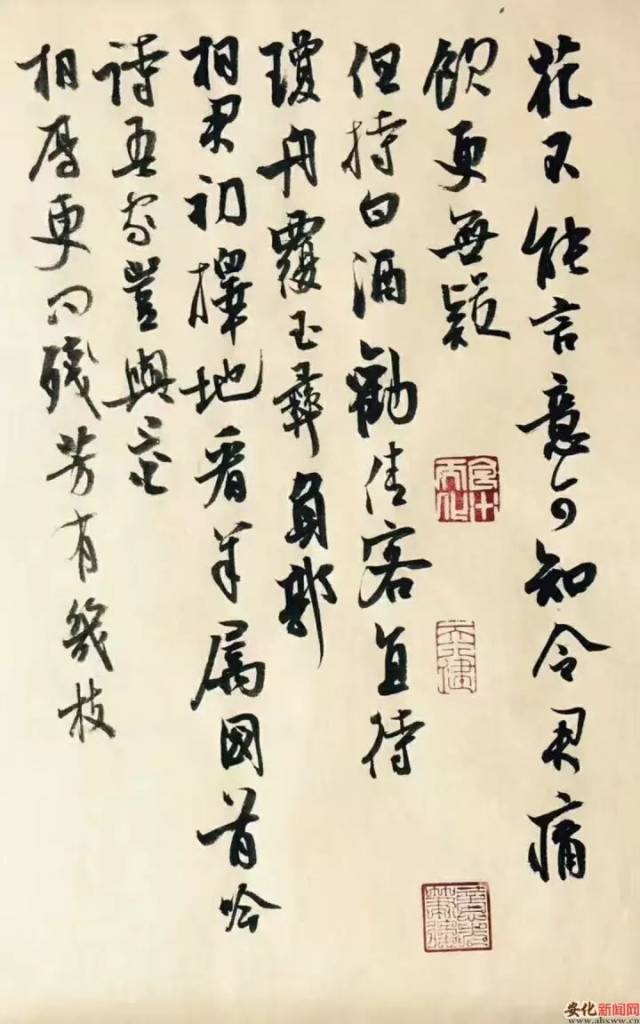 花不能言意可知令君痛
飲更無疑
但持白酒勸佳客直待
瓊舟覆玉彝負郭
相君初擇地看羊屬國首吟
詩吾家豈與花
相厚更问殘芳有幾枝
安化新闻网
www.ahxww.cn